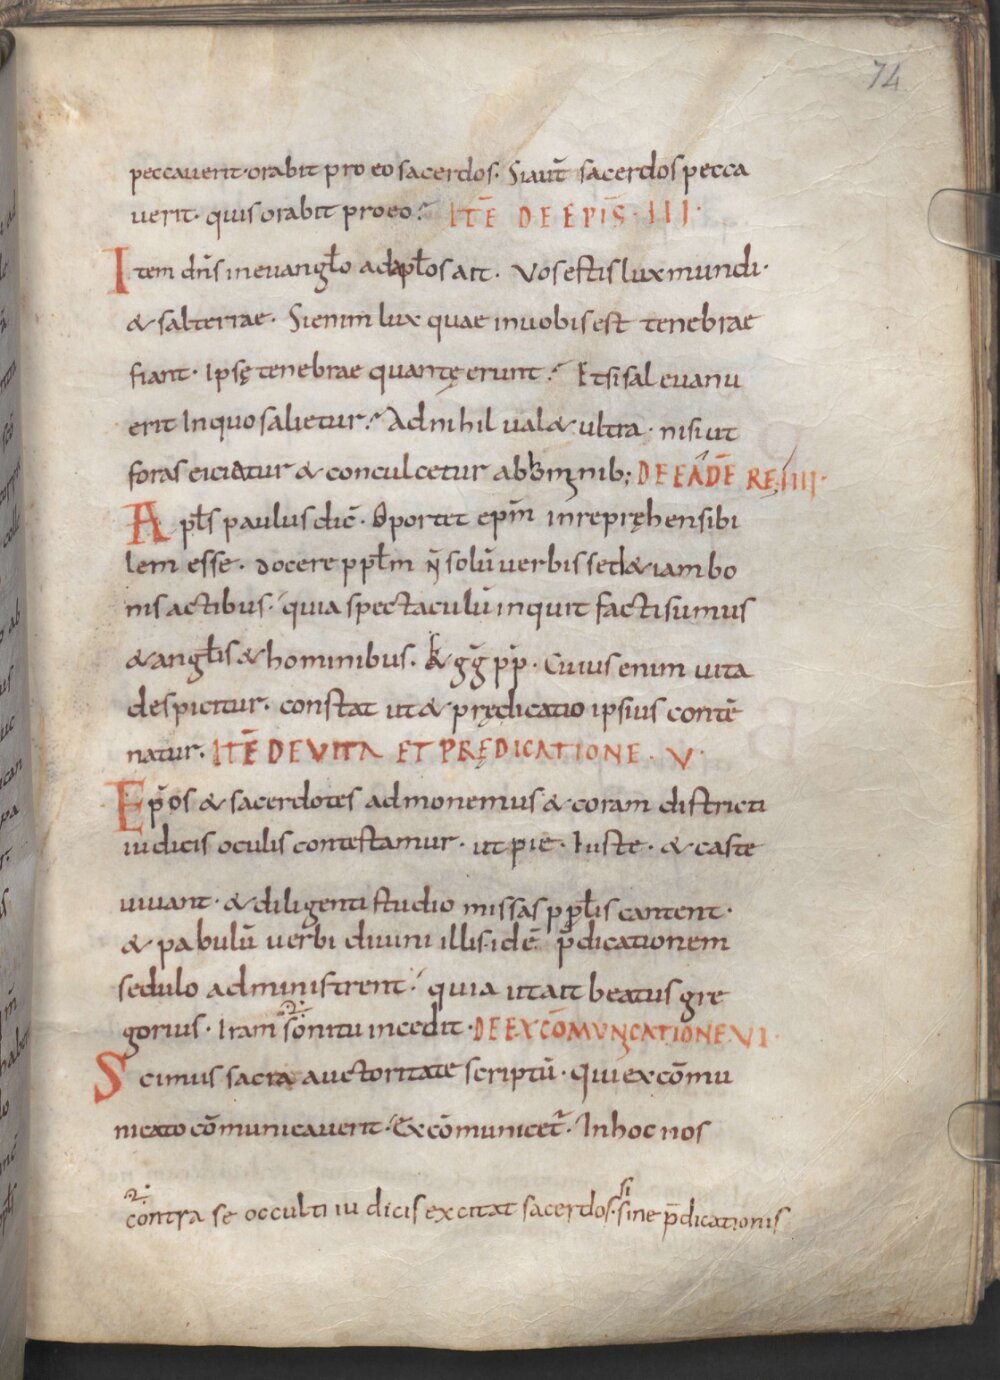 74
peccauerit· orabit pro eo sacerdos. Siaut̄ sacerdos pecca
uerit· quis orabit pro eo? ITĒ DE EPĪS· III·
Item dn̄s in euangl̄o ad apl̄os ait· Vos estis lux mundi·
& sal terrae. Si enim lux quae in uobis est tenebrae
fiant· Ipsę tenebrae quantę erunt? Et si sal euanu
erit In quo salietur? Ad nihil ual& ultra· nisi ut
foras eiciatur & conculcetur ab DE EADĒ RE· IIII·
Apl̄s paulus dic̄· Oportet ep̄m inrepręhensibi
lem esse· docere ppl̄m n̄ solū uerbis sed &iam bo
nis actibus· quia spectaculū inquit facti sumus
& angl̄is & hominibus. & gḡ pp̄· Cuius enim uita
despicitur· constat ut & prędicatio ipsius contē
natur. ITĒ DE VITA ET PRĘDICATIONE· V·
Ep̄os & sacerdotes admonemus & coram districti
iudicis oculis contestamur· ut pie· Iuste· & caste
uiuant· & diligenti studio missas p ppl̄is cantent·
& pabulū uerbi diuini illis· idē p̄dicationem
sedulo administrent· quia ut ait beatus gre
gorius· Iram sonitu incedit· DE EXCŌMUNCATIONE· VI·
Scimus sacra auctoritate scriptū· qui excōmu
nicato cōmunicauerit· Excōmunicet̄· In hoc nos
contra se occulti iudicis excitat sacerdos· si sine p̄dicationis